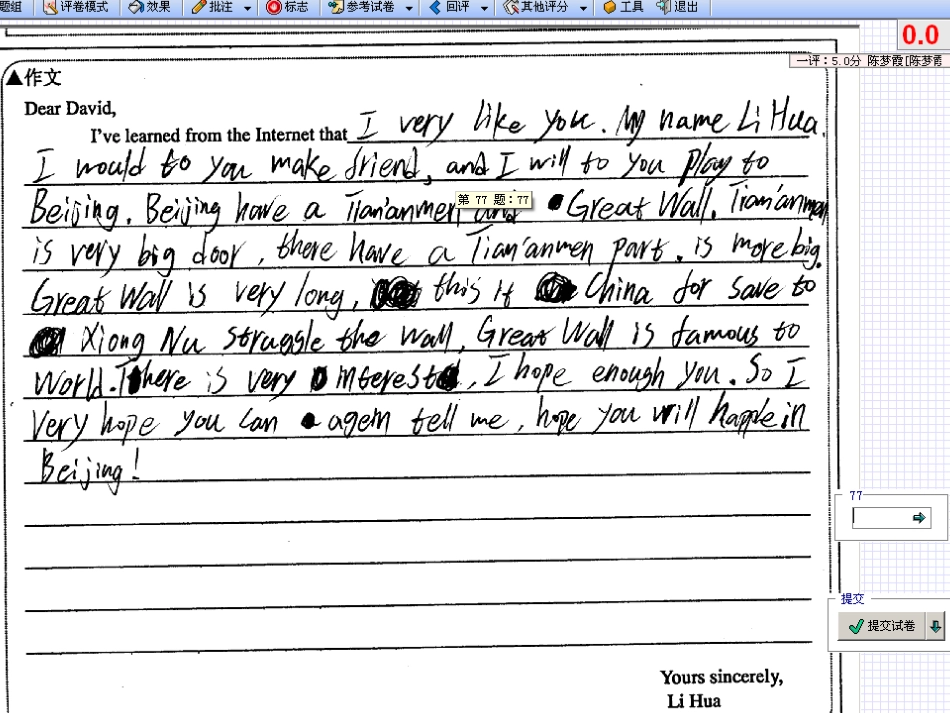 题组 评卷模式 效果 批注 标志 参考试卷 回评 其他评分 工具 退出
0.0
一评：5.0分 陈梦霞[陈梦霞
▲作文
Dear David,
I've learned from the Internet that I very like you. My name Li Hua.
I would to you make friend, and I will to you play to
Beijing. Beijing have a Tian'anmen and Great Wall. Tian'anmen
第 77 题：77
is very big door, there have a Tian'anmen part. is more big.
Great Wall is very long, this it China for save to
Xiong Nu struggle the wall, Great Wall is famous to
World. There is very interest, I hope enough you. So I
Very hope you can agein tell me, hope you will happle in
Beijing!
77
提交
提交试卷
Yours sincerely,
Li Hua